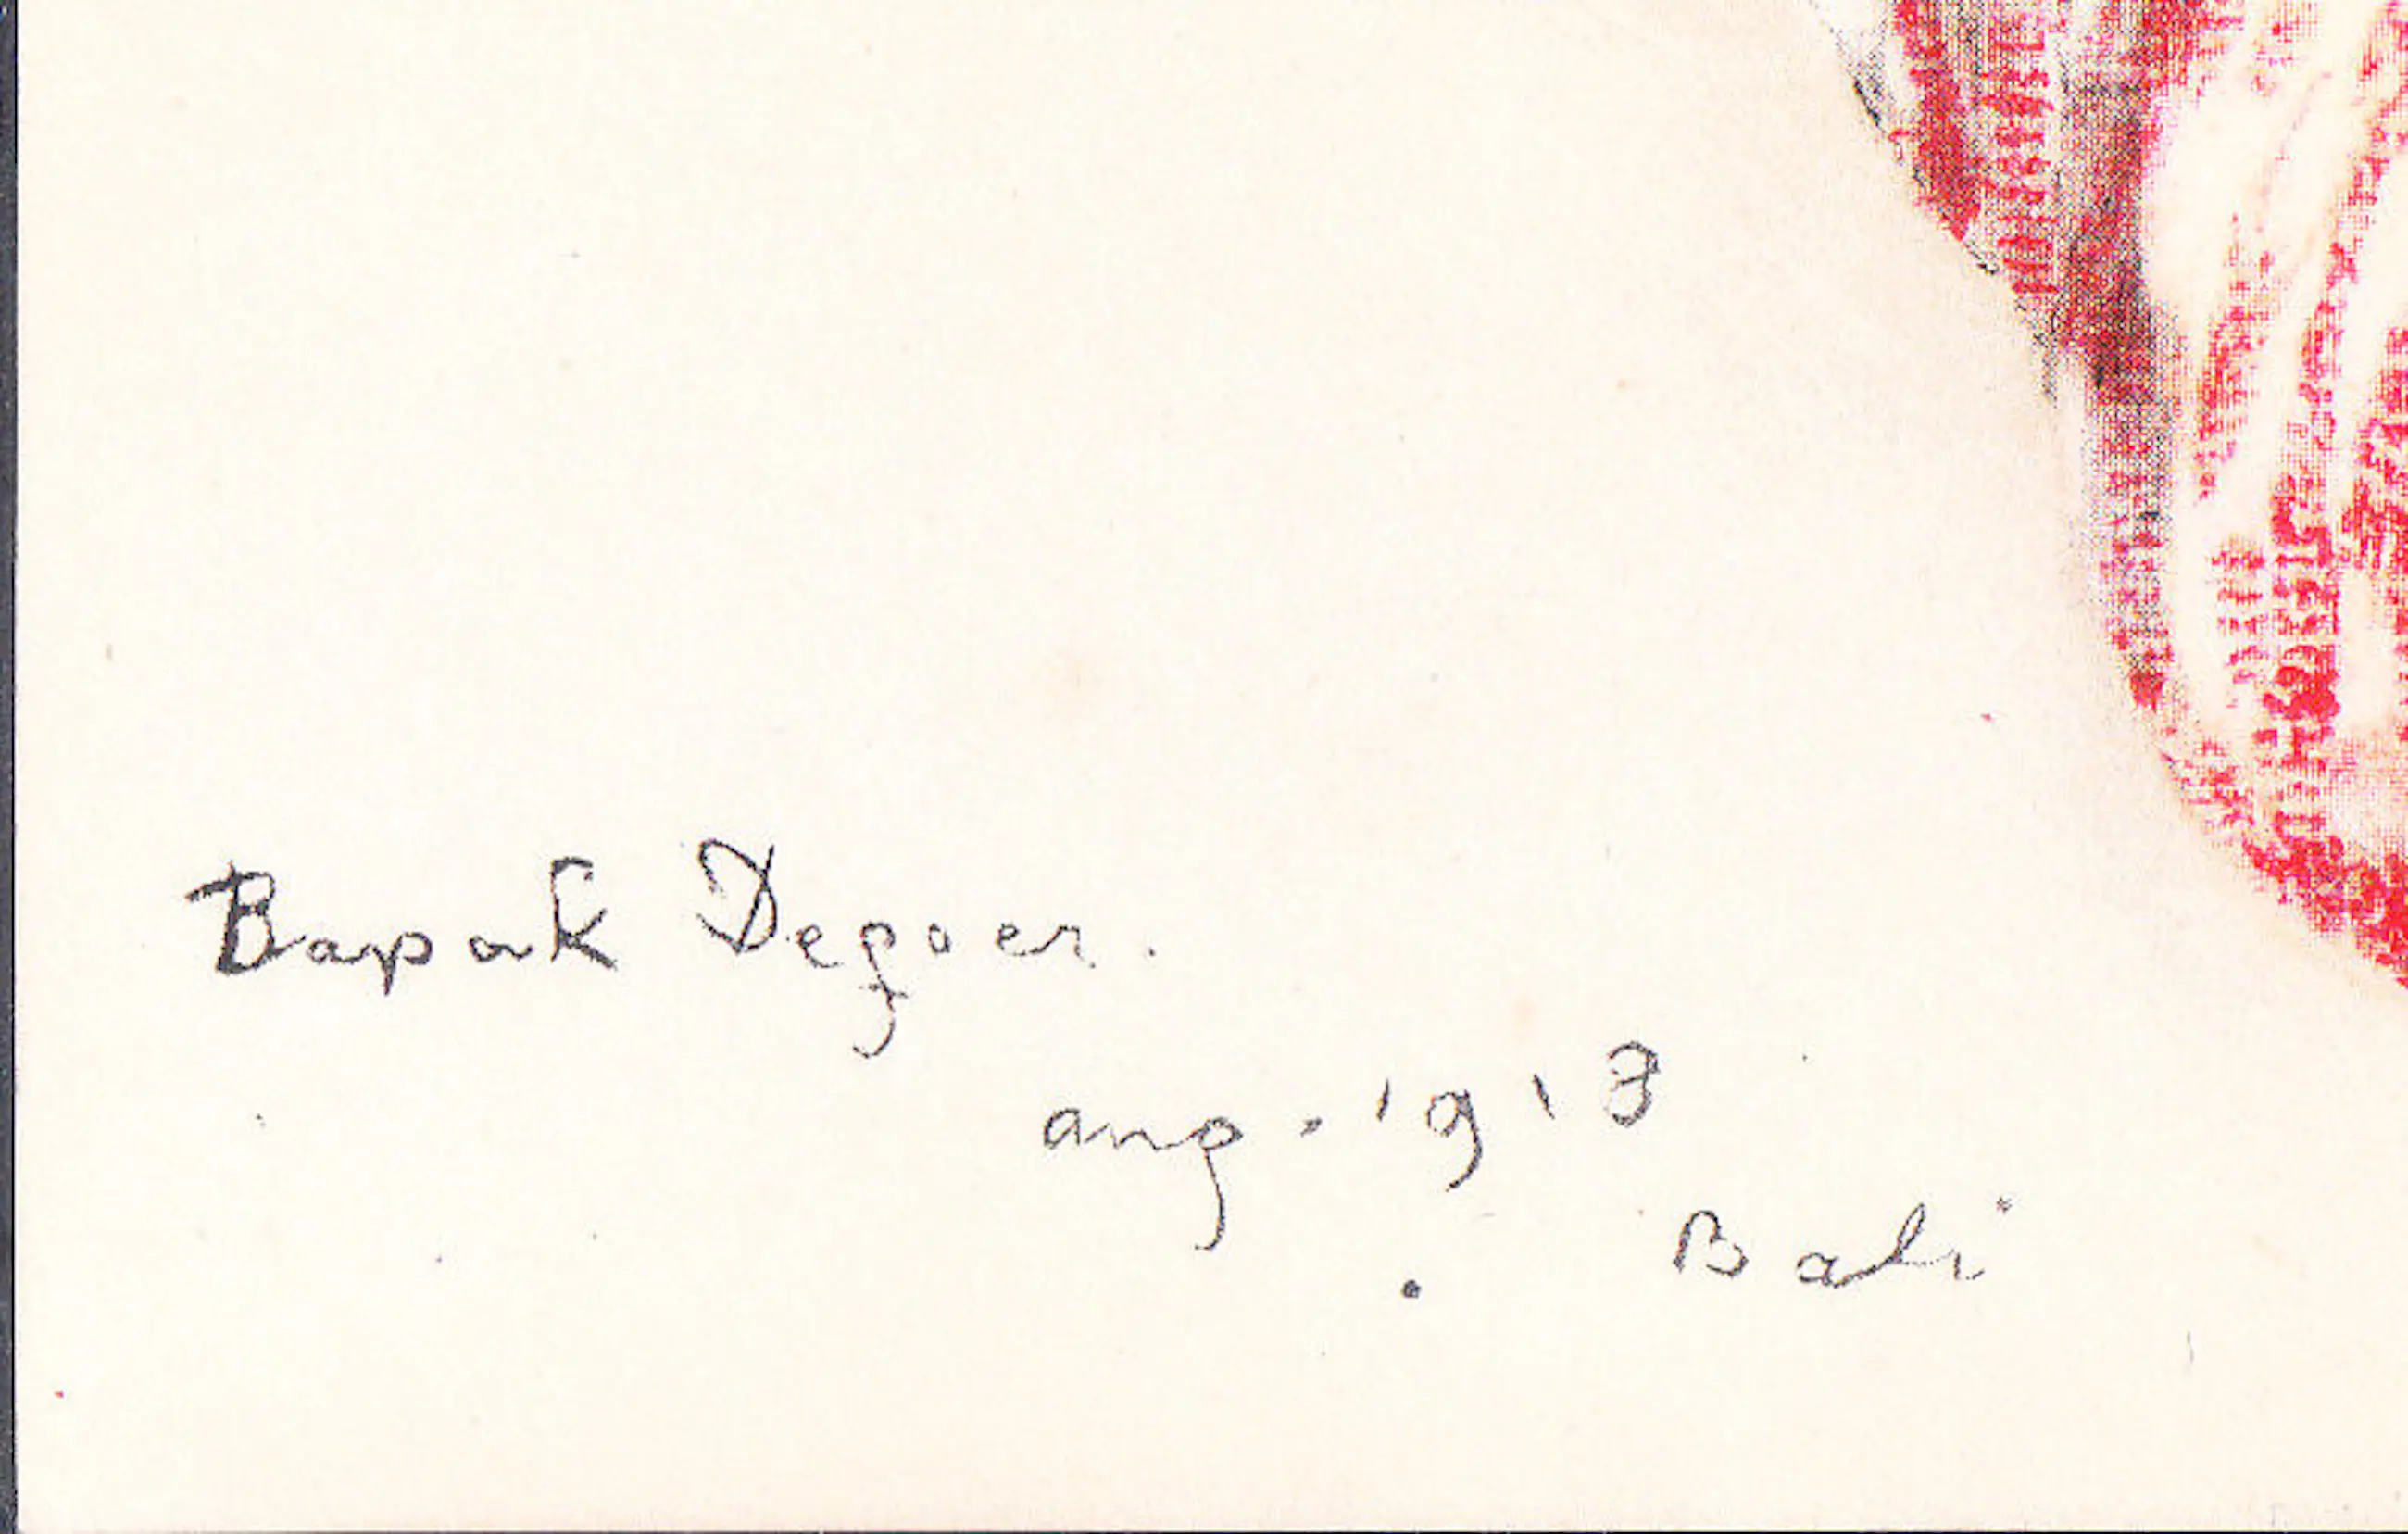 Bapak Degoer.
aug. 1918
Bali